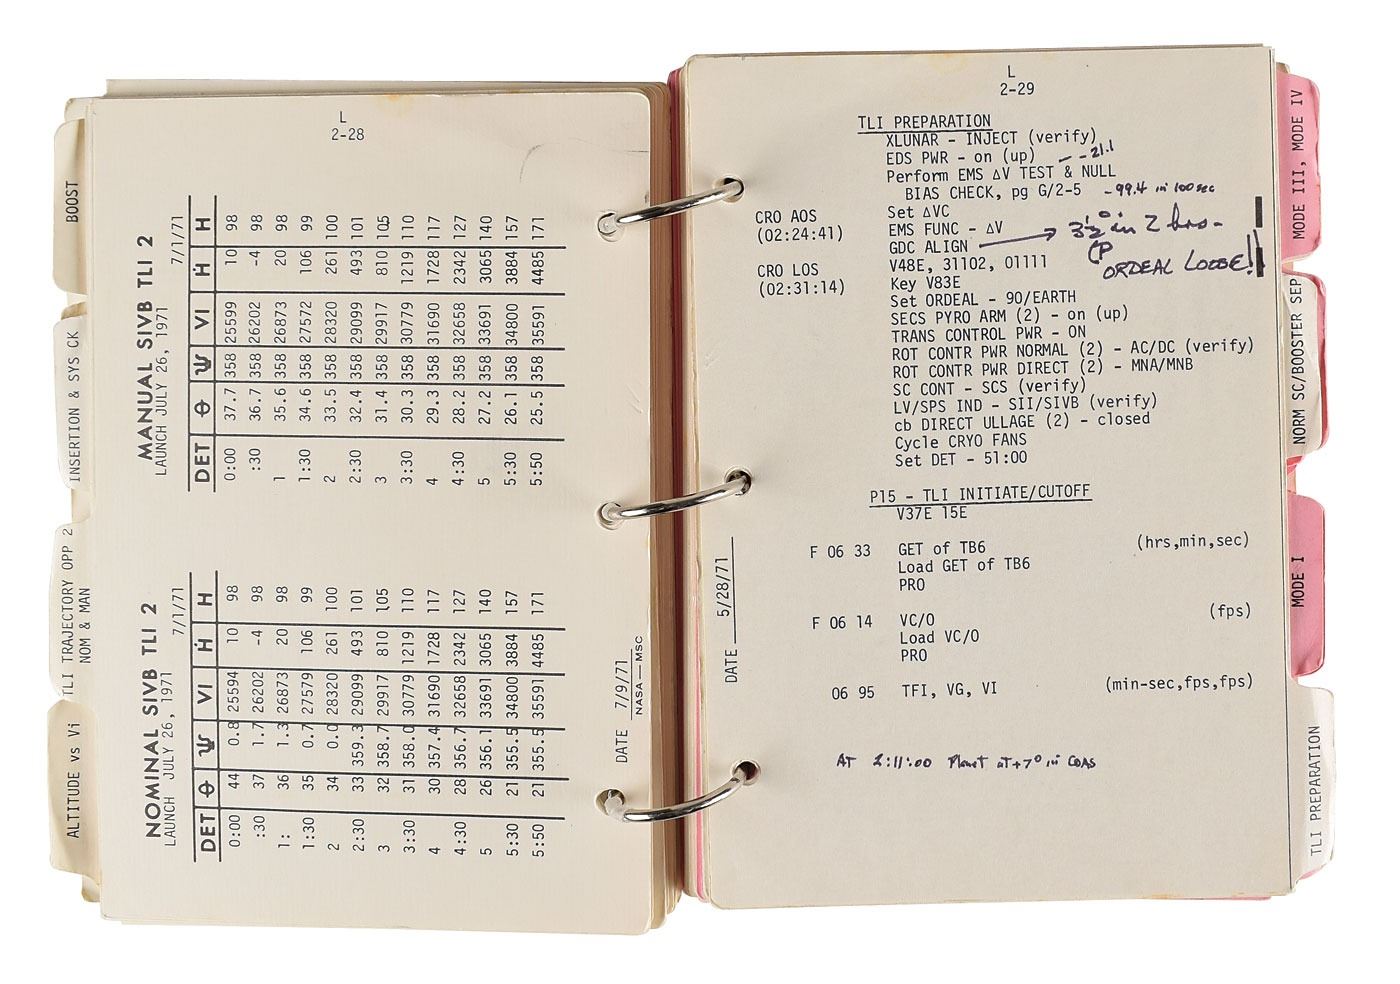 BOOST
INSERTION & SYS CK
TLI TRAJECTORY OPP 2
NOM & MAN
ALTITUDE vs Vi
L
2-28
MANUAL SIVB TLI 2
LAUNCH JULY 26, 1971
7/1/71
DET θ Ψ VI Ḣ H
0:00 37.7 358 25599 10 98
:30 36.7 358 26202 -4 98
1 35.6 358 26873 20 98
1:30 34.6 358 27572 106 99
2 33.5 358 28320 261 100
2:30 32.4 358 29099 493 101
3 31.4 358 29917 810 105
3:30 30.3 358 30779 1219 110
4 29.3 358 31690 1728 117
4:30 28.2 358 32658 2342 127
5 27.2 358 33691 3065 140
5:30 26.1 358 34800 3884 157
5:50 25.5 358 35591 4485 171
NOMINAL SIVB TLI 2
LAUNCH JULY 26, 1971
7/1/71
DET θ Ψ VI Ḣ H
0:00 44 0.8 25594 10 98
:30 37 1.7 26202 -4 98
1: 36 1.3 26873 20 98
1:30 35 0.7 27579 106 99
2 34 0.0 28320 261 100
2:30 33 359.3 29099 493 101
3 32 358.7 29917 810 105
3:30 31 358.0 30779 1219 110
4 30 357.4 31690 1728 117
4:30 28 356.7 32658 2342 127
5 26 356.1 33691 3065 140
5:30 21 355.5 34800 3884 157
5:50 21 355.5 35591 4485 171
DATE 7/9/71
NASA — MSC
L
2-29
TLI PREPARATION
XLUNAR - INJECT (verify)
EDS PWR - on (up) - -21.1
Perform EMS ΔV TEST & NULL
BIAS CHECK, pg G/2-5 -99.4 in 100 sec
CRO AOS
(02:24:41)
CRO LOS
(02:31:14)
Set ΔVC
EMS FUNC - ΔV
GDC ALIGN → 3½° in 2 hrs-
ORDEAL LOOSE!
V48E, 31102, 01111
Key V83E
Set ORDEAL - 90/EARTH
SECS PYRO ARM (2) - on (up)
TRANS CONTROL PWR - ON
ROT CONTR PWR NORMAL (2) - AC/DC (verify)
ROT CONTR PWR DIRECT (2) - MNA/MNB
SC CONT - SCS (verify)
LV/SPS IND - SII/SIVB (verify)
cb DIRECT ULLAGE (2) - closed
Cycle CRYO FANS
Set DET - 51:00
P15 - TLI INITIATE/CUTOFF
V37E 15E
F 06 33 GET of TB6 (hrs,min,sec)
Load GET of TB6
PRO
F 06 14 VC/O (fps)
Load VC/O
PRO
06 95 TFI, VG, VI (min-sec,fps,fps)
AT 2:11:00 Planet at +7° in COAS
DATE 5/28/71
MODE III, MODE IV
NORM SC/BOOSTER SEP
MODE I
TLI PREPARATION